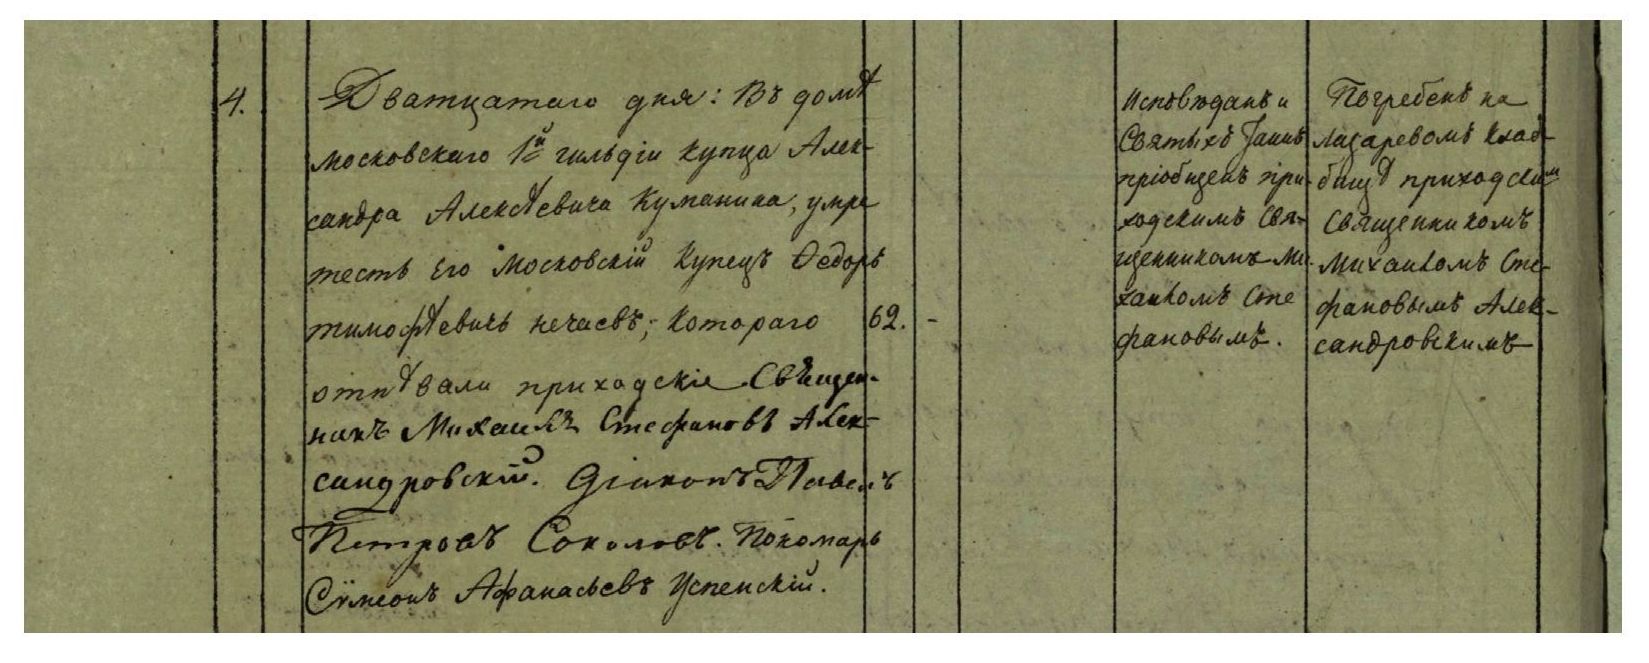 4.
Дватцатаго дня: Въ домѣ
московскаго 1й гильдіи купца Алек-
сандра Алексѣевича Куманина, умре
тесть Его Московскій Купецъ Ѳедоръ
тимофѣевичь нечаевъ; котораго
отпѣвали приходскіе Священ-
никъ Михаилъ Стефановъ Алек-
сандровскій. Діаконъ Павелъ
Петровъ Соколовъ. Пономарь
Сѵмеонъ Афанасьевъ Успенскій.
62. -
Исповѣданъ и
Святыхъ Таинъ
пріобщенъ при-
ходскимъ Свя-
щенникомъ Ми-
хаиломъ Сте
фановымъ.
Погребенъ на
Лазаревомъ клад-
бищѣ приходскимъ
Священникомъ
Михаиломъ Сте-
фановымъ Алек-
сандровскимъ